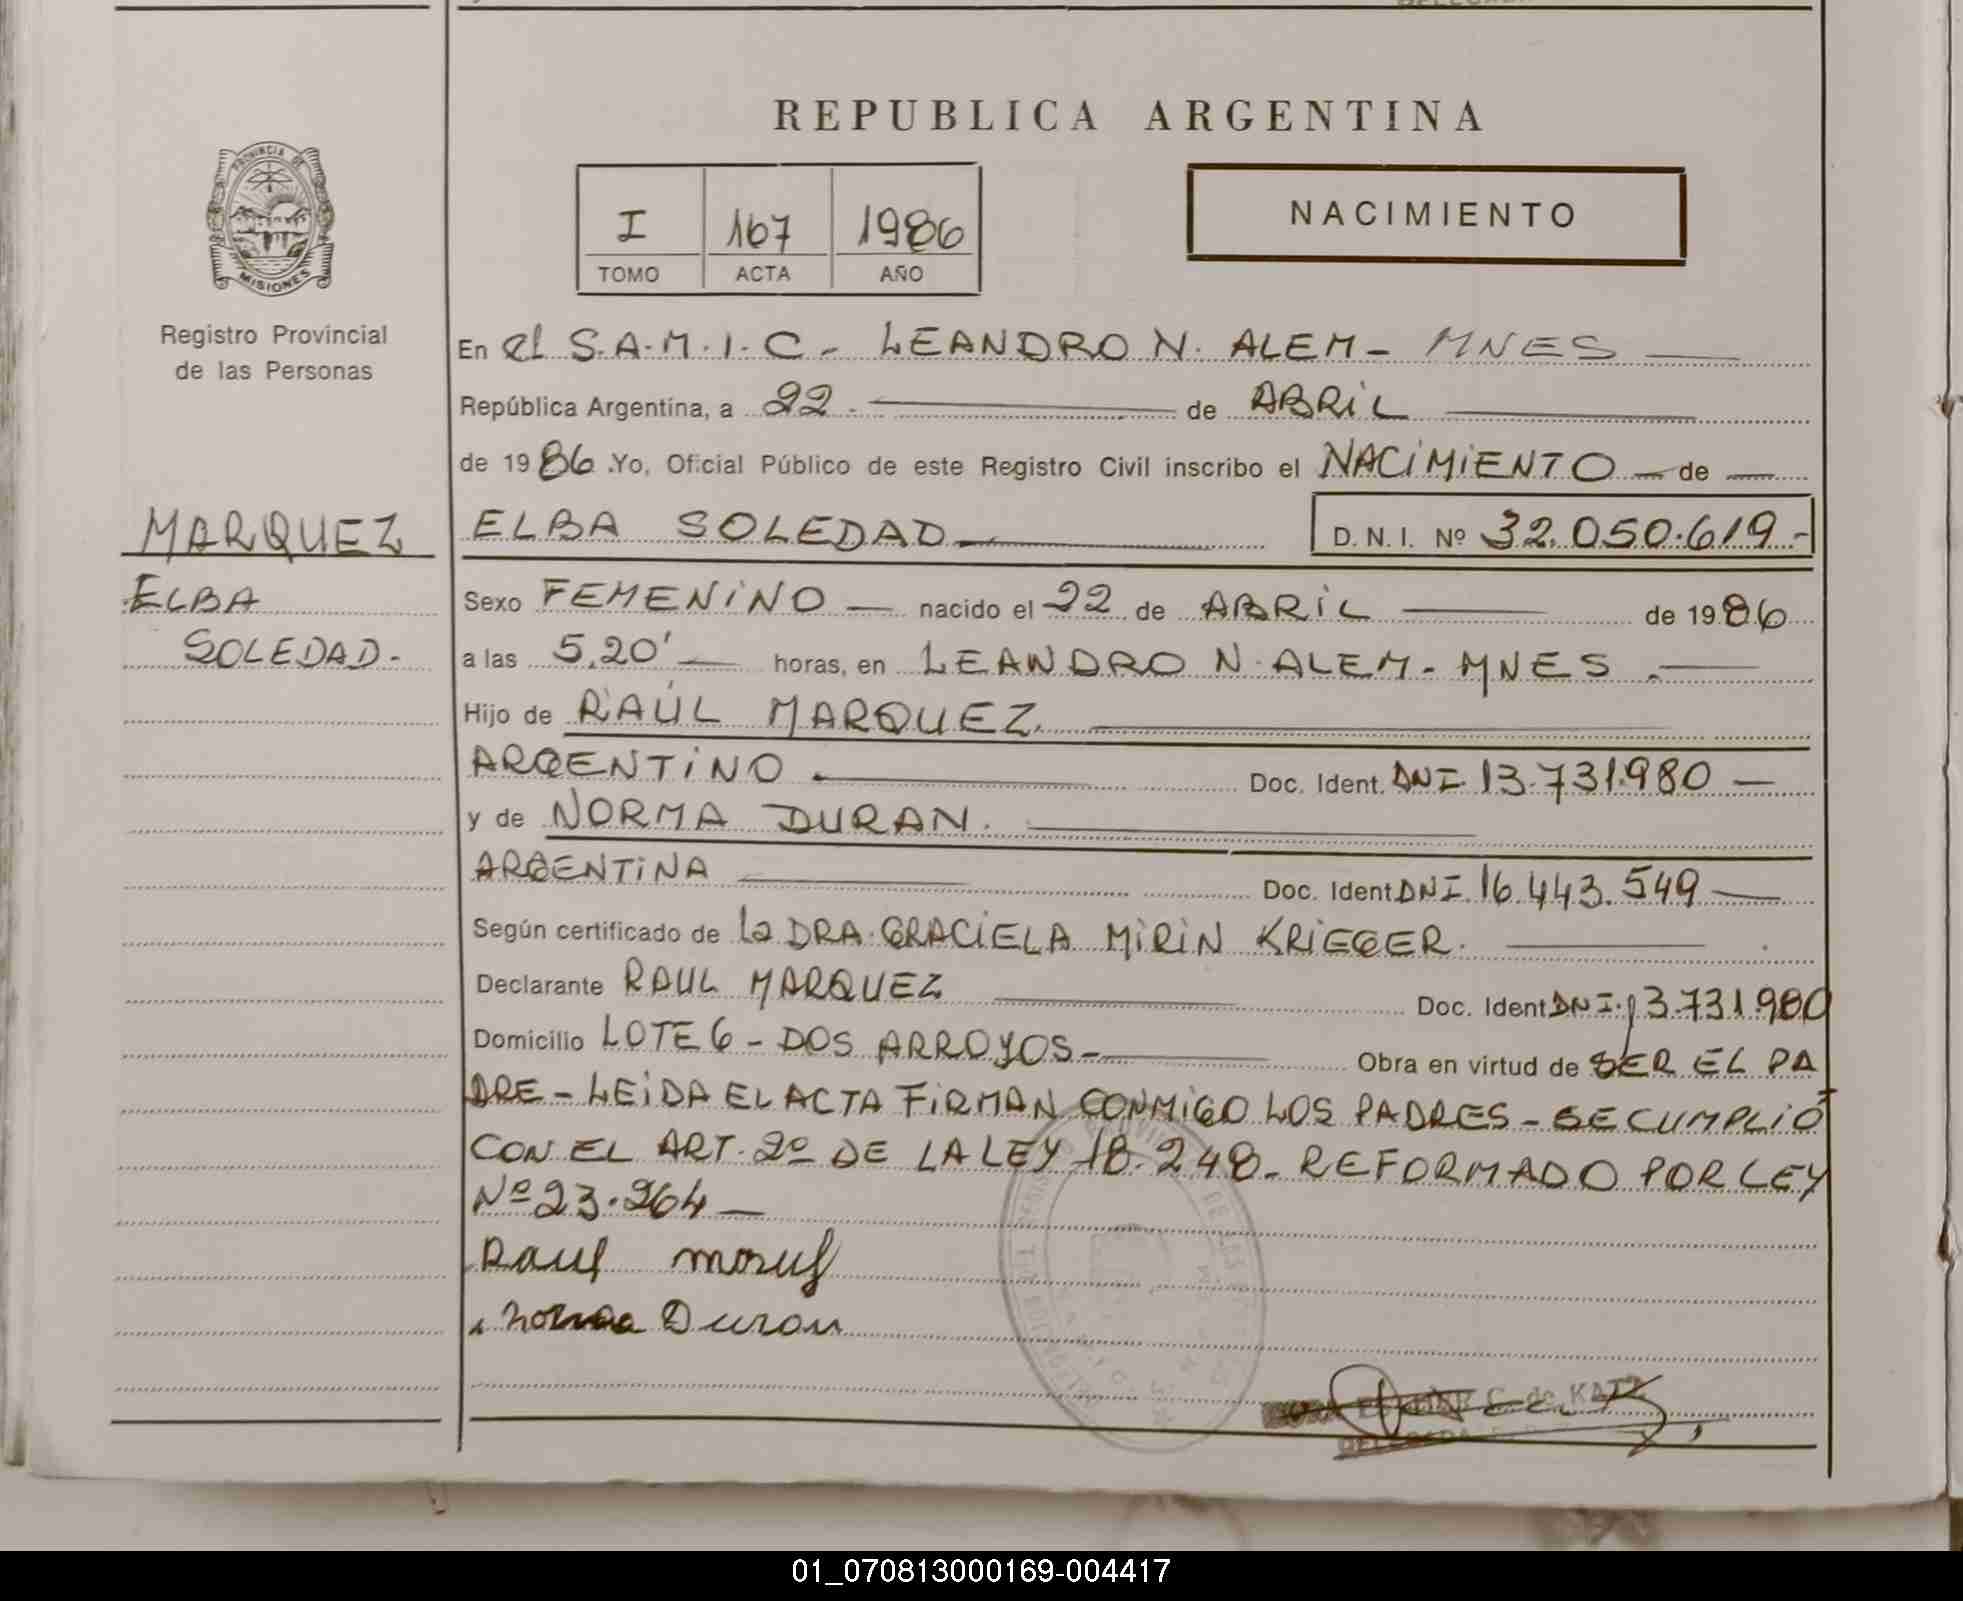 REPUBLICA ARGENTINA
PROVINCIA DE
MISIONES
I 167 1986
TOMO ACTA AÑO
NACIMIENTO
Registro Provincial
de las Personas
En el S.A.M.I.C- LEANDRO N. ALEM- MNES
República Argentina, a 22. de ABRIL
de 1986.Yo, Oficial Público de este Registro Civil inscribo el NACIMIENTO de
MARQUEZ
ELBA
SOLEDAD-
ELBA SOLEDAD D.N.I. Nº 32.050.619.-
Sexo FEMENINO nacido el 22 de ABRIL de 1986
a las 5.20' horas, en LEANDRO N. ALEM- MNES.
Hijo de RAÚL MARQUEZ
ARGENTINO Doc. Ident. DNI. 13.731.980
y de NORMA DURAN.
ARGENTINA Doc. Ident DNI. 16.443.549
Según certificado de la DRA. GRACIELA MIRIN KRIEGER.
Declarante RAUL MARQUEZ Doc. Ident DNI. 13.731.980
Domicilio LOTE 6 - DOS ARROYOS- Obra en virtud de SER EL PA
DRE - LEIDA EL ACTA FIRMAN CONMIGO LOS PADRES - SE CUMPLIÓ
CON EL ART. 2º DE LA LEY 18.248- REFORMADO POR LEY
Nº 23.264
Raul
Norma Duran
C. de KATZ
DELEGADA
01_070813000169-004417